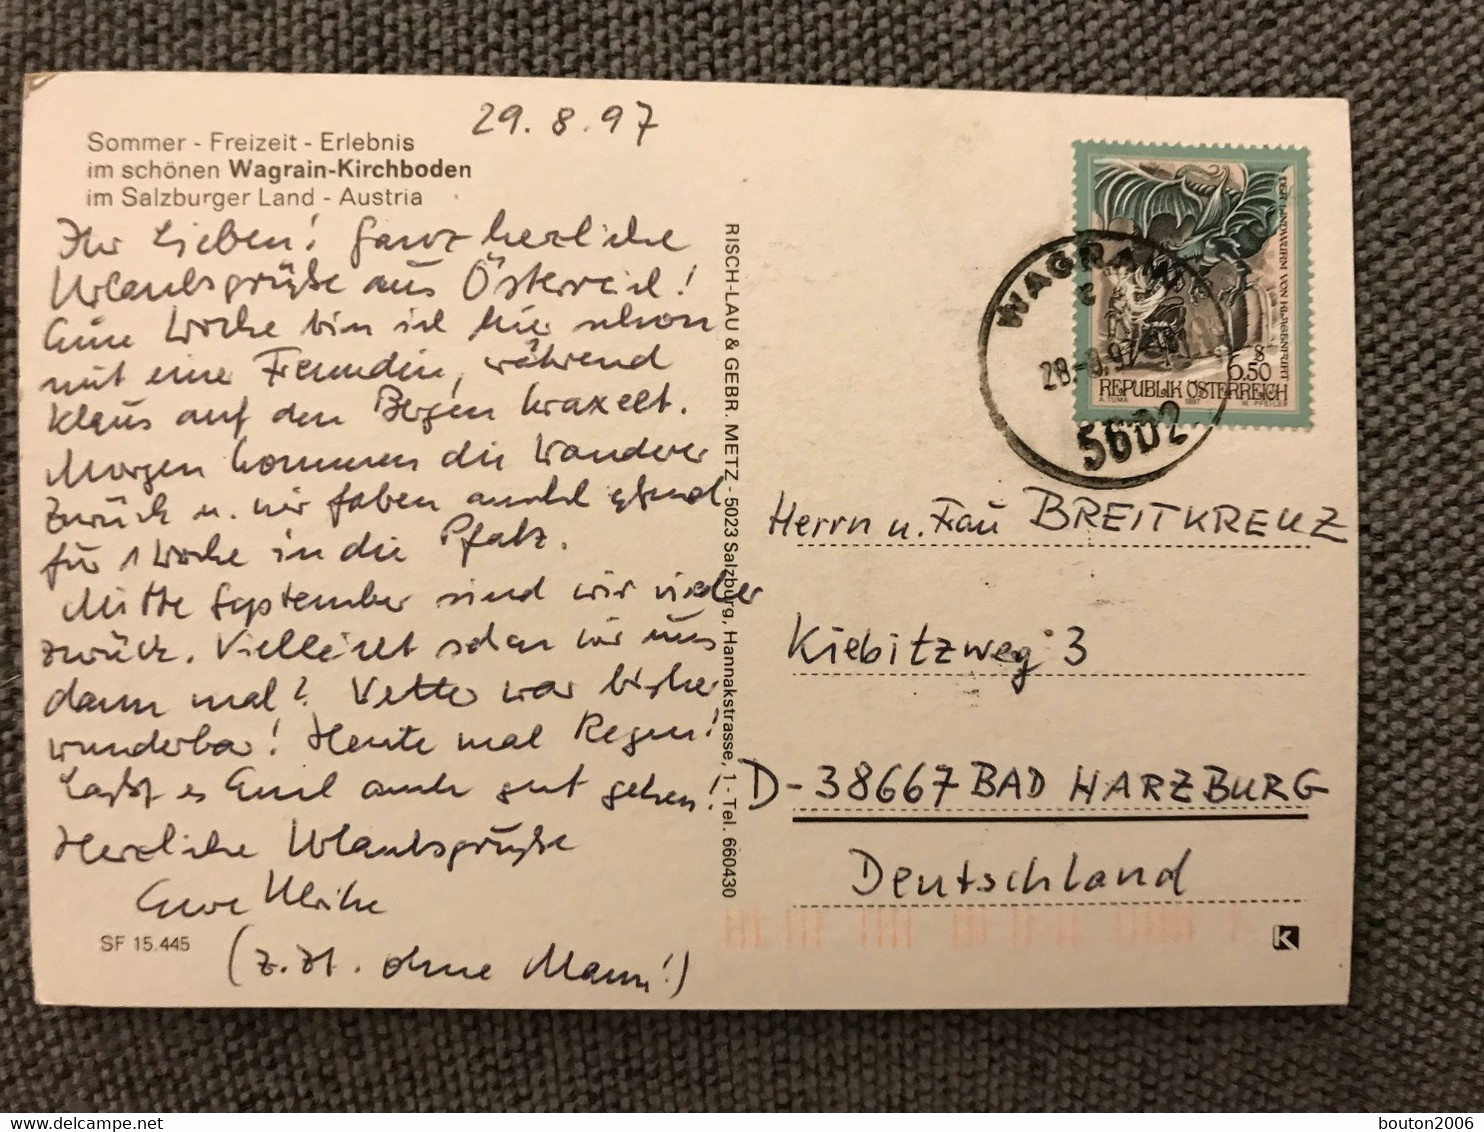 29.8.97
Sommer - Freizeit - Erlebnis
im schönen Wagrain-Kirchboden
im Salzburger Land - Austria
Ihr Lieben! Ganz herzliche
Urlaubsgrüße aus Österreich!
Eine Woche bin ich hier schon
mit einer Freundin, während
Klaus auf den Bergen kraxelt.
Morgen kommen die Wanderer
zurück u. wir fahren
für 1 Woche in die Pfalz.
Mitte September sind wir wieder
zurück. Vielleicht sehen wir uns
dann mal? Wetter war bisher
wunderbar! Heute mal Regen!
Laßt es Euch auch gut gehen!
Herzliche Urlaubsgrüße
Eure Ulrike
(z.Zt. ohne Mann!)
SF 15.445
RISCH-LAU & GEBR. METZ - 5023 Salzburg, Hannakstrasse, 1 - Tel. 660430
DER LINDWURM VON KLAGENFURT
6.50
REPUBLIK ÖSTERREICH
A. TUMA 1997 W. PFEILER
WAGRAIN
28.-8.97
5602
Herrn u. Frau BREITKREUZ
Kiebitzweg 3
D-38667 BAD HARZBURG
Deutschland
K
delcampe.net
bouton2006